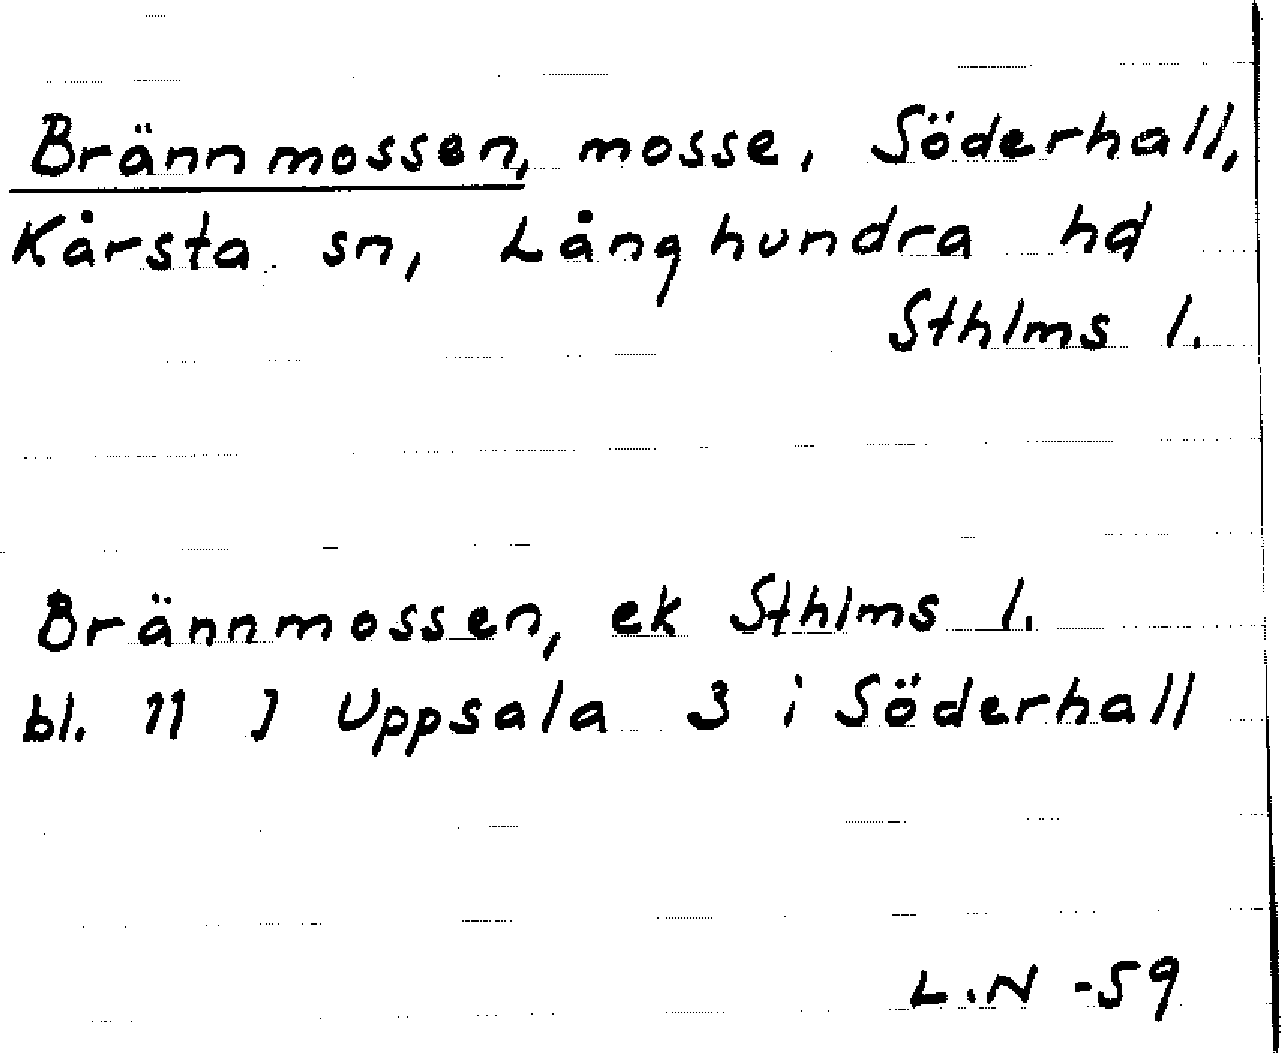 Brännmossen, mosse, Söderhall,
Kårsta sn, Långhundra hd
Sthlms l.
Brännmossen, ek Sthlms l.
bl. 11 J Uppsala 3 i Söderhall
L.N -59